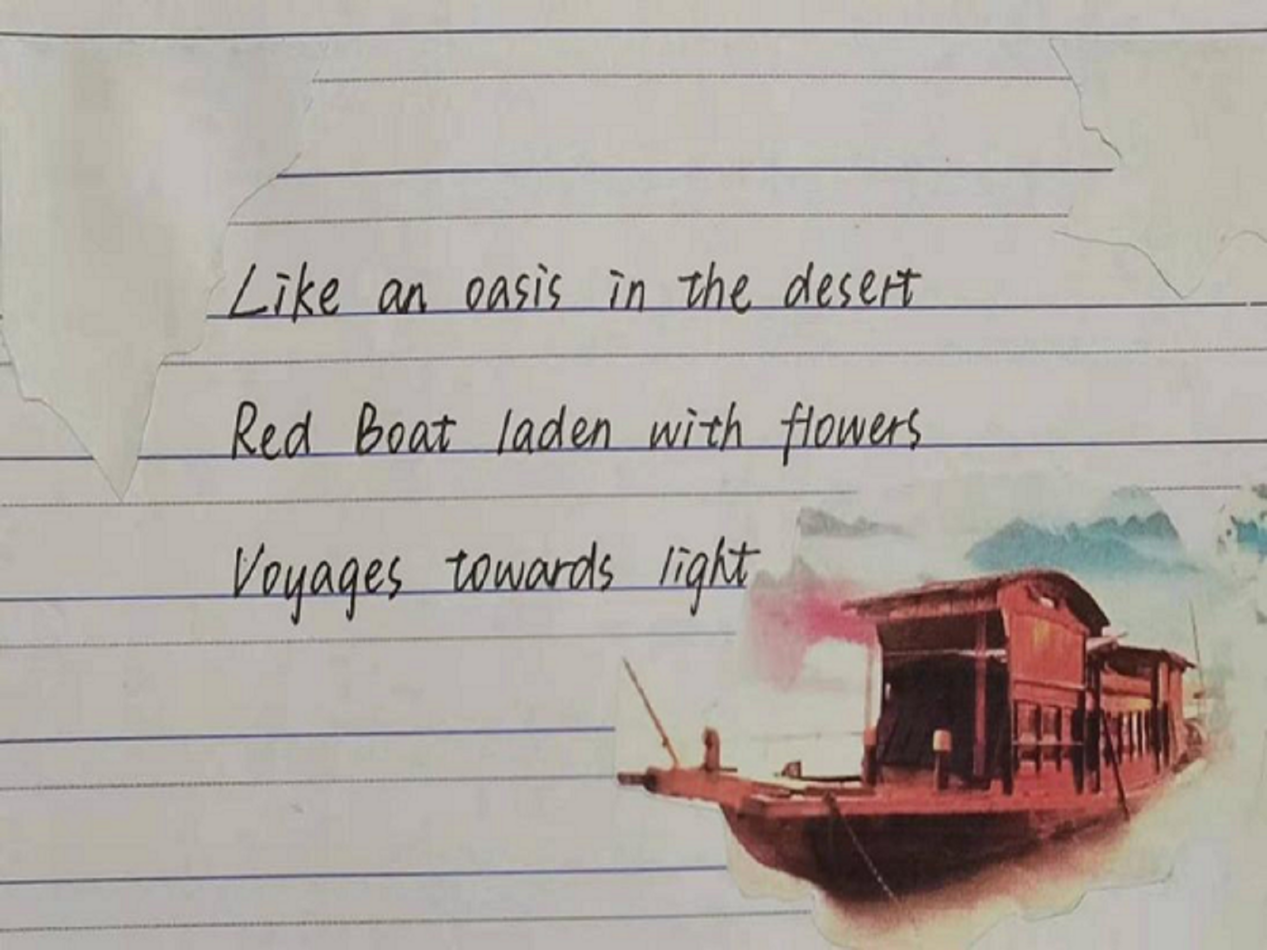 Like an oasis in the desert
Red Boat laden with flowers
Voyages towards light